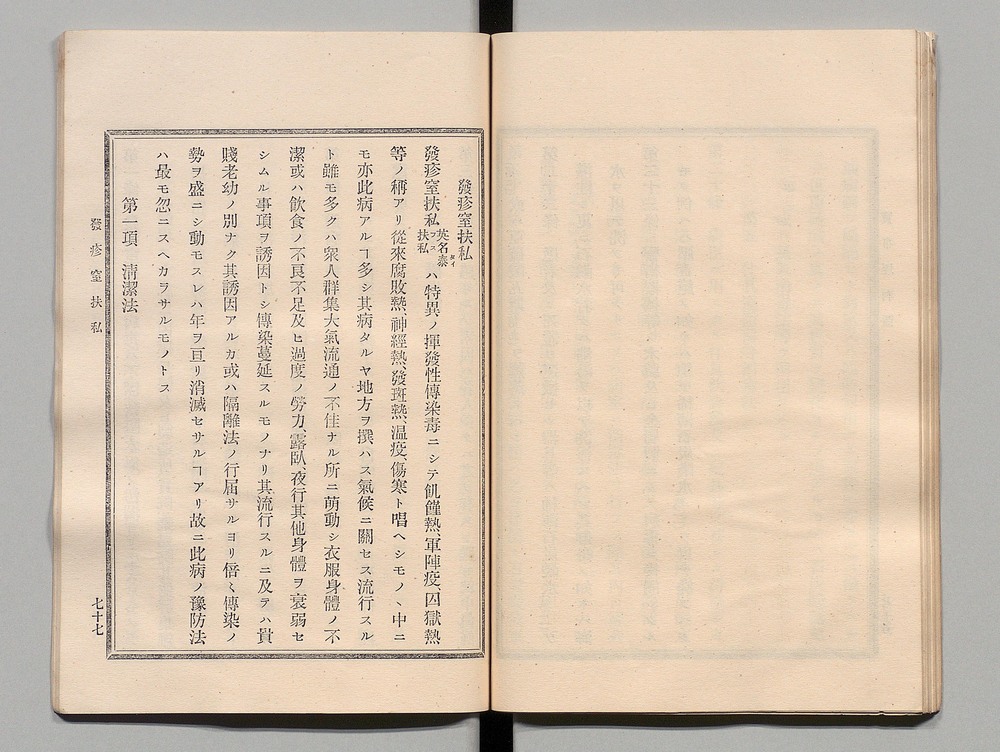 發疹窒扶私
發疹窒扶私英名泰扶私ハ特異ノ揮發性傳染毒ニシテ飢饉熱、軍陣疫、囚獄熱
等ノ稱アリ從來腐敗熱、神經熱、發斑熱、溫疫、傷寒ト唱ヘシモノヽ中ニ
モ亦此病アルヿ多シ其病タルヤ地方ヲ撰ハス氣候ニ關セス流行スル
ト雖モ多クハ衆人群集大氣流通ノ不佳ナル所ニ萌動シ衣服身體ノ不
潔或ハ飮食ノ不良不足及ヒ過度ノ勞力、露臥、夜行其他身體ヲ衰弱セ
シムル事項ヲ誘因トシ傳染蔓延スルモノナリ其流行スルニ及テハ貴
賤老幼ノ別ナク其誘因アルカ或ハ隔離法ノ行届サルヨリ倍〻傳染ノ
勢ヲ盛ニシ動モスレハ年ヲ亘リ消滅セサルヿアリ故ニ此病ノ豫防法
ハ最モ忽ニスヘカラサルモノトス
第一項　淸潔法
發疹窒扶私
七十七